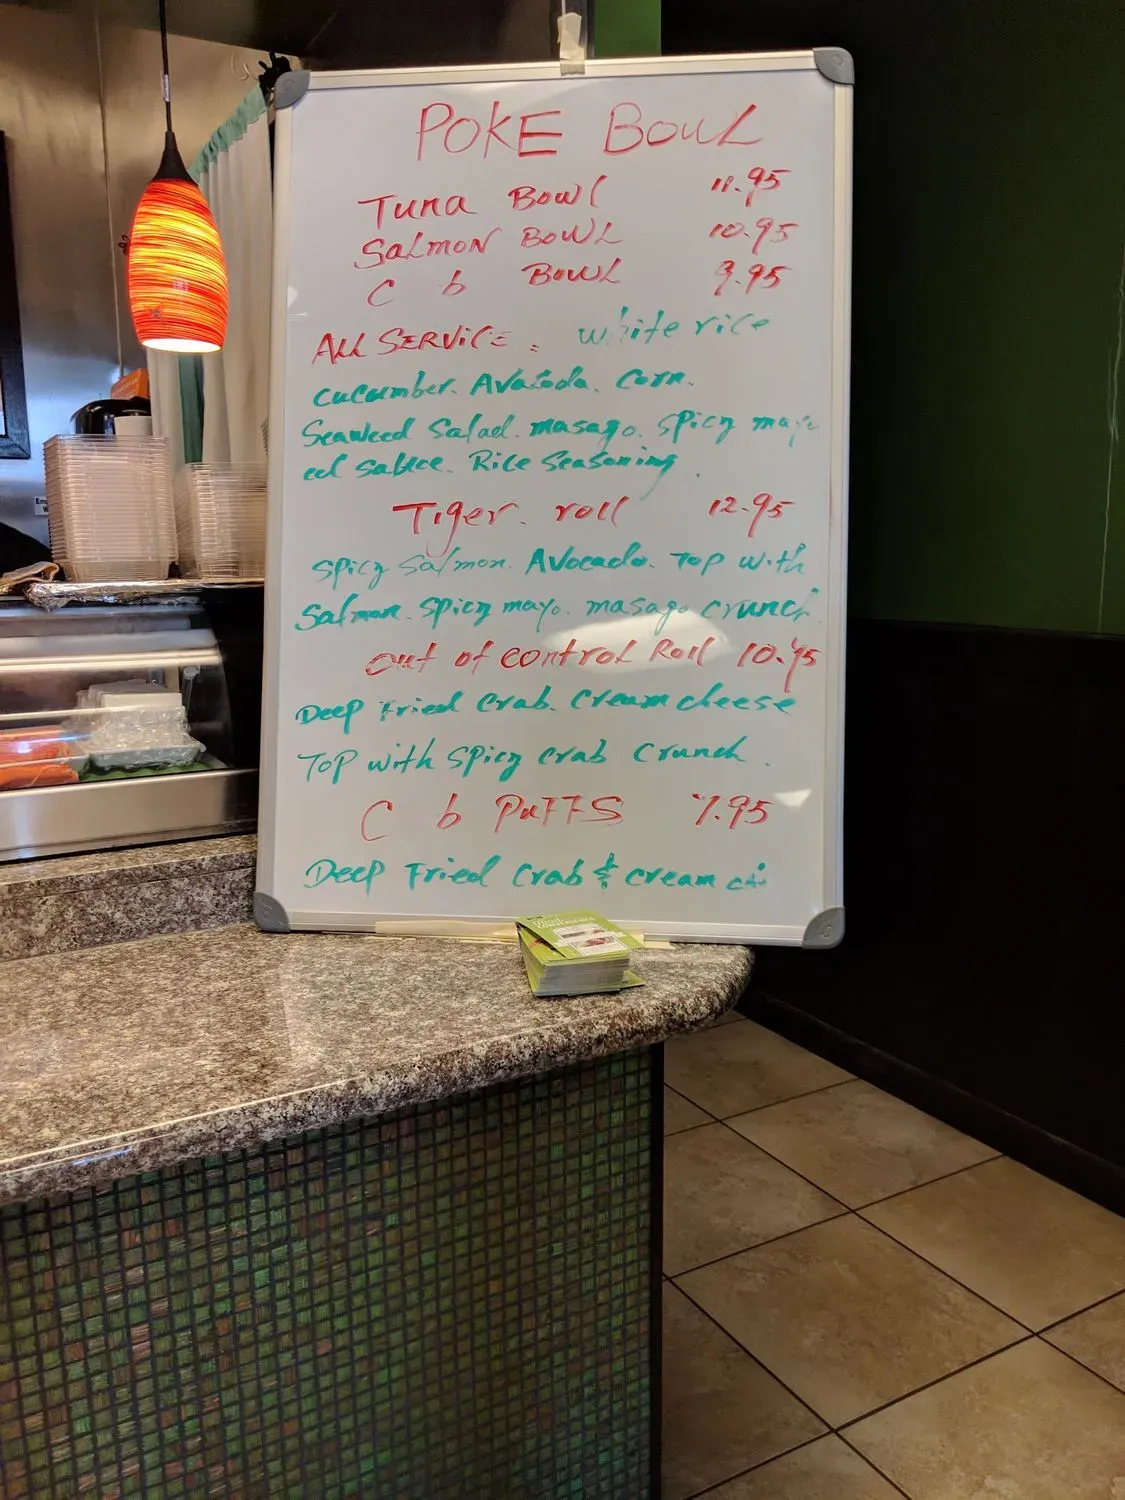 POKE BOWL
TUNA BOWL 11.95
SALMON BOWL 10.95
C b BOWL 9.95
ALL SERVICE: white rice
cucumber. Avacoda. Corn.
Seaweed Salad. masago. spicy mayo
eel sauce. Rice Seasoning
Tiger. roll 12.95
spicy Salmon. Avocado. Top with
Salmon. spicy mayo. masago crunch
out of control Roll 10.95
Deep Fried Crab. Cream cheese
Top with spicy crab crunch.
C b PUFFS 7.95
Deep Fried Crab & cream